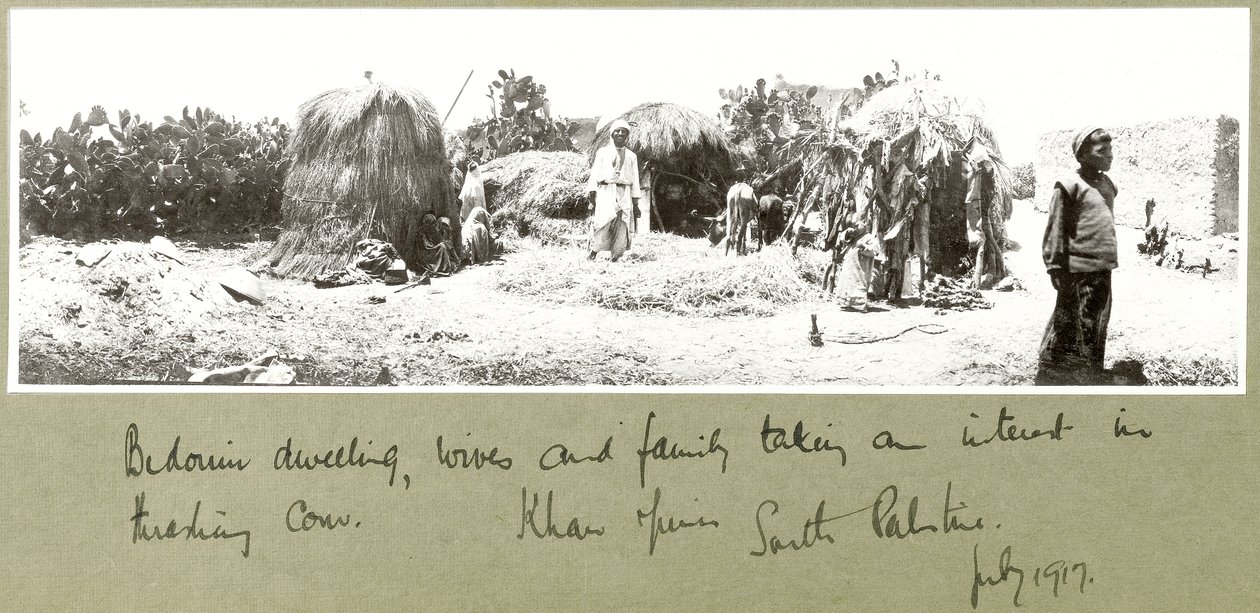 Bedouin dwelling, wives and family taking an interest in
thrashing Corn. Khan Yunis South Palestine.
July 1917.